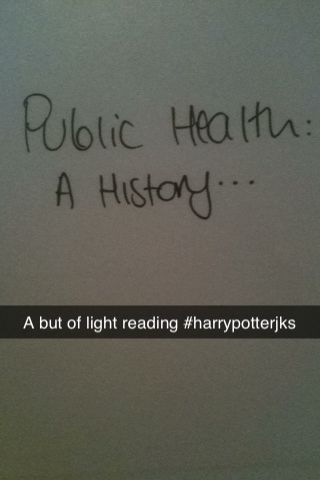 Public Health:
A History...
A but of light reading #harrypotterjks